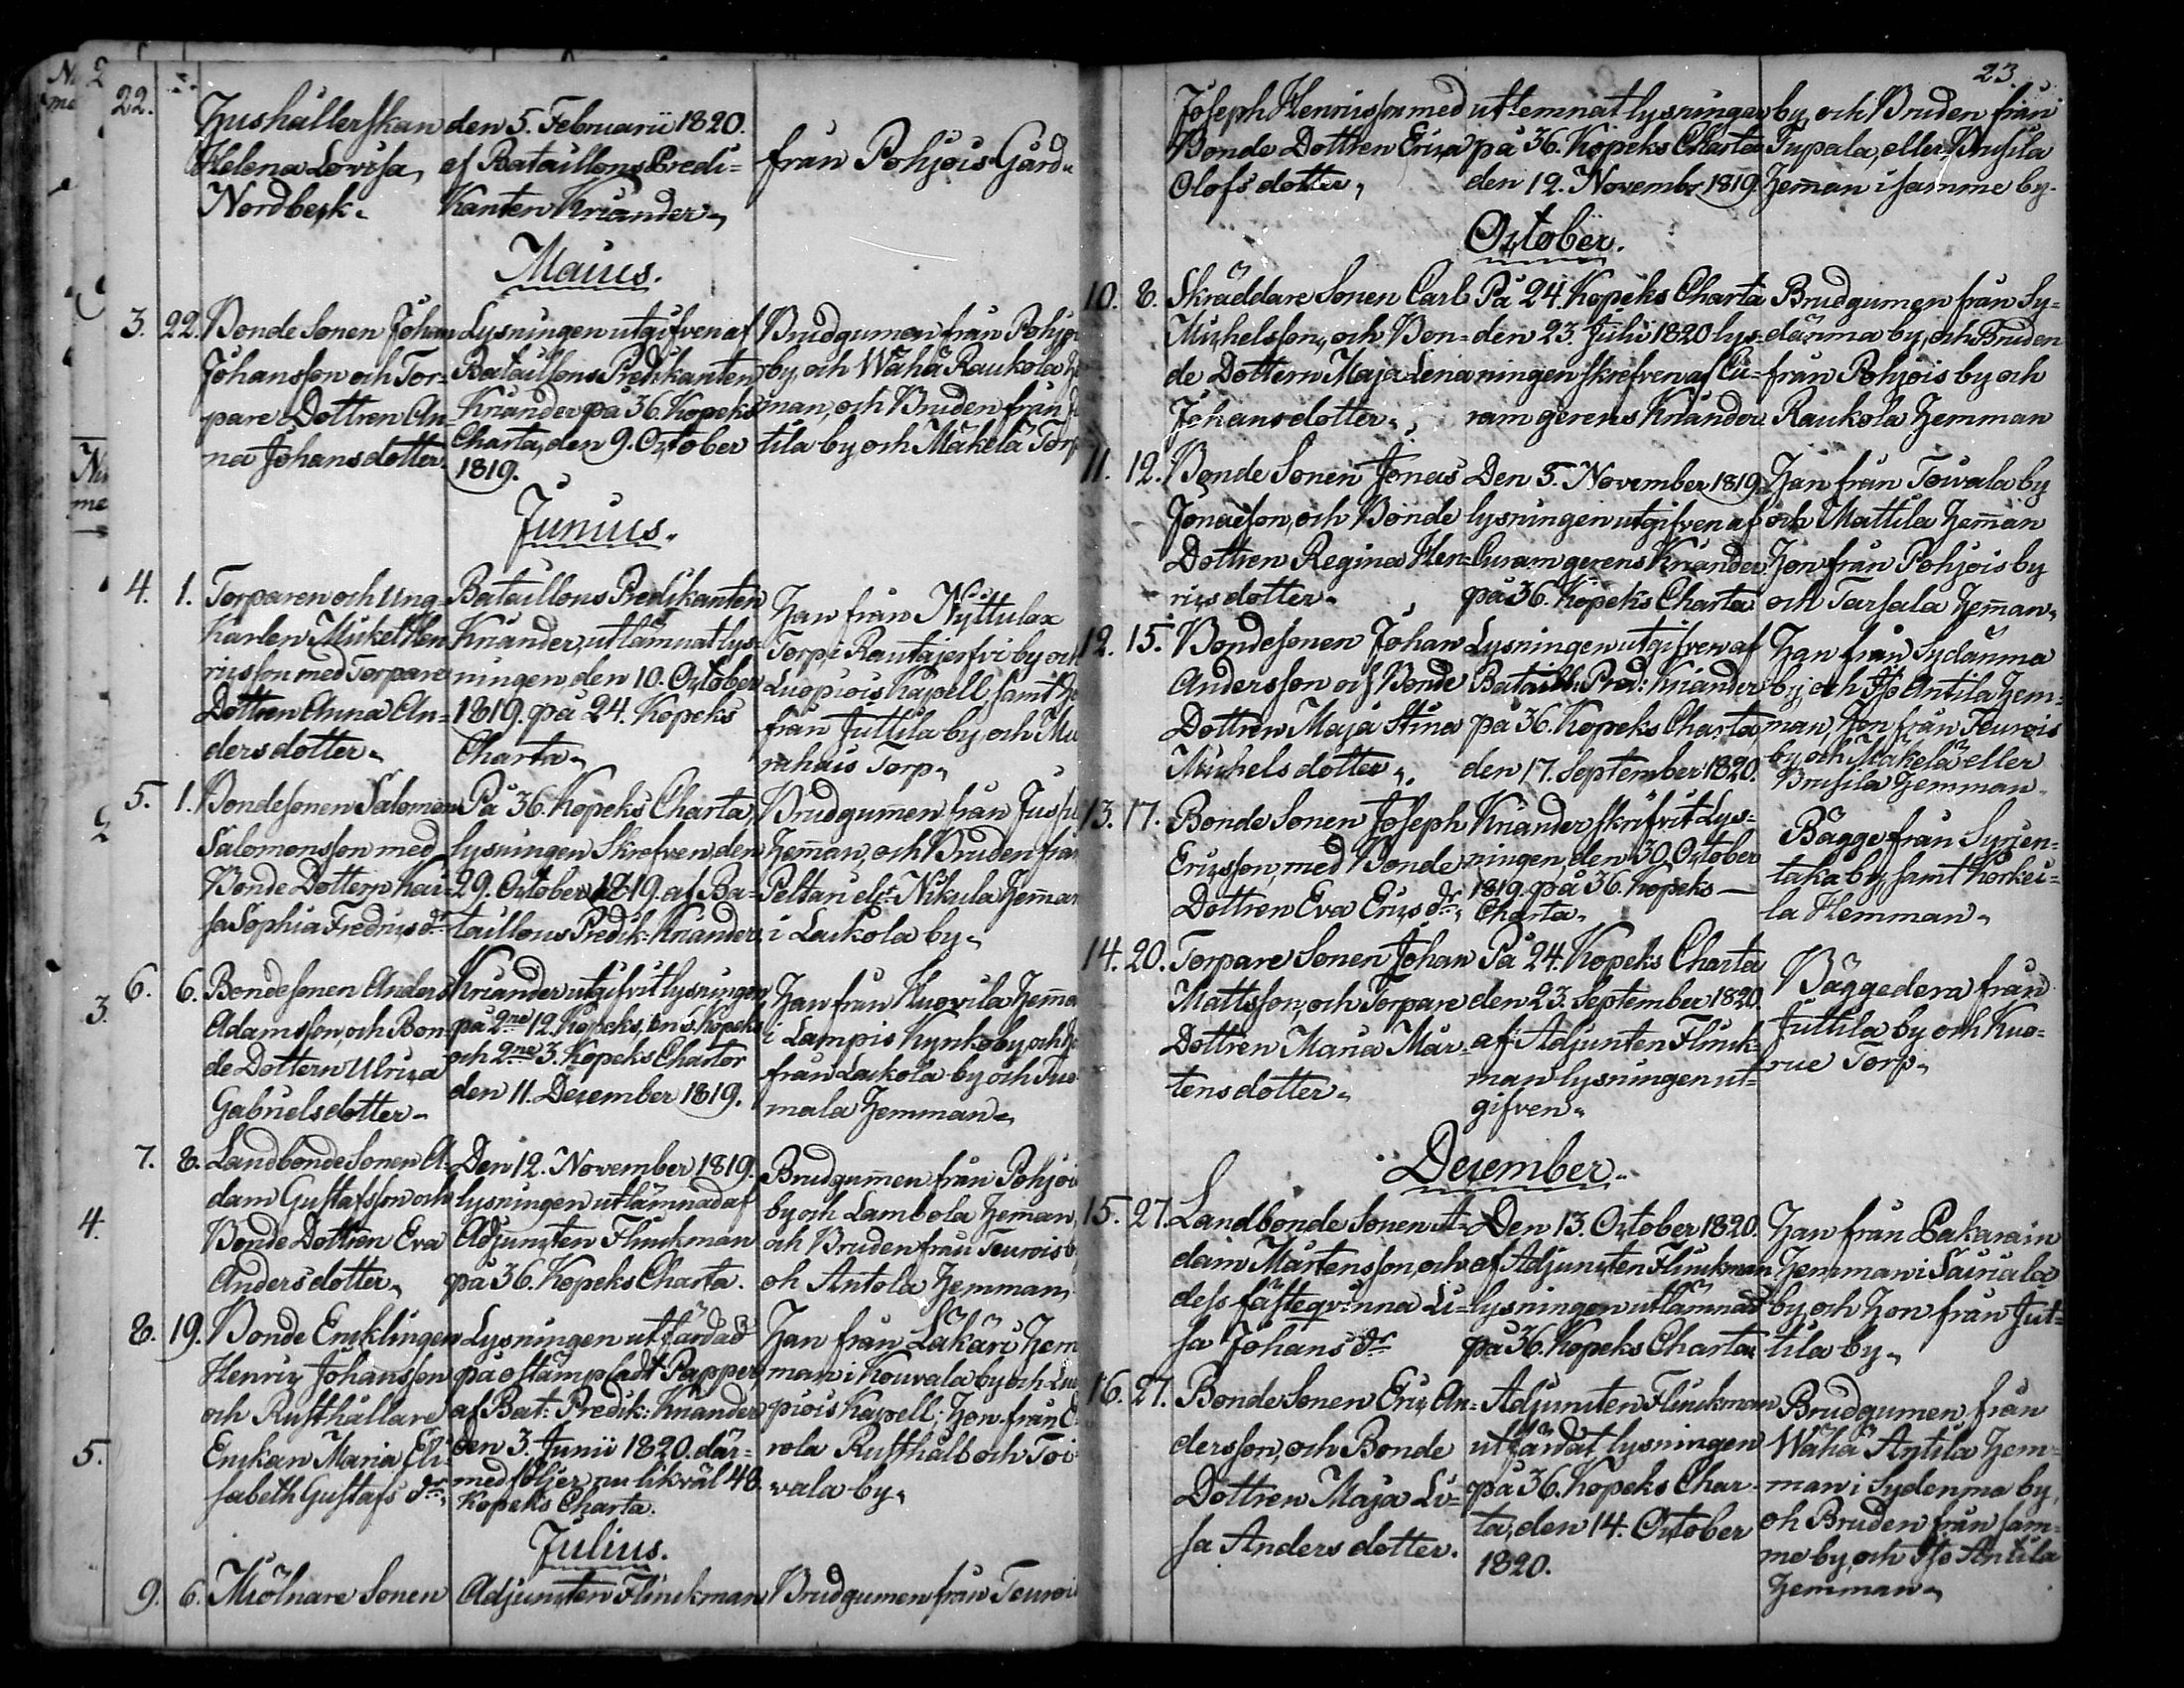 22.
Hushållerskan
Helena Lovisa
Nordbeck.
den 5. Februarii 1820.
af Bataillons Predi-
kanten Kriander,
från Pohjois Gård.
Maius.
3. 22. Bonde Sonen Johan
Johansson och Tor-
pare Dottren An-
na Johansdotter.
Lysningen utgifven af
Bataillons Predikanten
Kriander på 36. Kopeks
Charta, den 9. October
1819.
Brudgumen från Pohjo
by och Wähä Raukola
man, och Bruden från
tila by och Mäkelä Torp
Junius.
4. 1. Torparen och Ung-
Karlen Mickel Hen-
ricsson med Torpare
Dottren Anna An-
dersdotter.
Bataillons Predikanten
Kriander, utlämnat lys-
ningen den 10. October
1819. på 24. Kopeks
Charta.
Han från Nyttulax
Torp i Rautajerfvi by och
Luopiois Kapell, samt
från Juttila by och
Torp.
5. 1. Bondesonen Salomon
Salomonsson med
Bonde Dottern Kai-
sa Sophia Fredricsdr
På 36. Kopeks Charta,
lysningen skrefven den
29. October 1819. af Ba-
taillons Predik: Kriander
Brudgumen från
Hemman, och Bruden från
Peltari elr Nikula Hemman
i Laikola by.
6. 6. Bondesonen Anders
Adamsson, och Bon-
de Dottern Ulrica
Gabrielsdotter.
Kriander utgifvit lysningen
på 2ne 12. Kopeks, en 6. Kopeks
och 2ne 3. Kopeks Chartor
den 11. December 1819.
Han från Kuovila Hemman
i Lampis Kynkoby och
från Laikola by och
mala Hemman.
7. 8. Landbonde Sonen A-
dam Gustafsson och
Bonde Dottren Eva
Andersdotter.
Den 12. November 1819.
lysningen utlämnad af
Adjuncten Flinckman
på 36. Kopeks Charta.
Brudgumen från Pohjoi
by och Lambola Hemman,
och Bruden från Teurois
oh Antola Hemman,
8. 19. Bonde Encklingen
Henric Johansson
och Rusthållare
Enckan Maria Eli-
sabeth Gustafs dr
Lysningen utfärdad
på ostämpladt Papper
af Bat: Predik: Kriander
den 3. Junii 1820. där-
med följer nu likväl 48.
Kopeks Charta.
Han från Läkäri Hem
man i Kouvala by och
piois Kapell; Hon från
rola Rusthåll och Toi-
vala by.
Julius.
9. 6. Miölnare Sonen
Adjuncten Flinckman
Brudgumen från Teuroi
23.
Joseph Henricsson med
Bonde Dottren Erica
Olofsdotter,
utlemnat lysningen
på 36. Kopeks Charta
den 12. November 1819.
by, och Bruden från
Tupala, eller Brusila
Hemman i samme by.
October.
10. 8. Skräddare Sonen Carl
Michelsson, och Bon-
de Dottern Maja Lena
Johansdotter.
På 24. Kopeks Charta
den 23. Julii 1820 lys-
ningen skrefven af Cu-
ram gerens Kriander
Brudgumen från Sy-
dänma by, och Bruden
från Pohjois by och
Raukola Hemman
11. 12. Bonde Sonen Jonas
Jonaeson, och Bonde
Dottren Regina Hen-
ricsdotter.
Den 5. November 1819
lysningen utgifven af
Curam gerens Kriander
på 36. Kopeks Charta
Han från Towala by
och Mattila Hemman
Hon från Pohjois by
och Tarsala Hemman.
12. 15. Bondesonen Johan
Andersson och Bonde
Dottren Maja Stina
Michelsdotter.
Lysningen utgifven af
Bataill: Pred: Kriander
på 36. Kopeks Charta
den 17. September 1820.
Han från Sydänma
by, och Iso Antila Hem-
man, Hon från Teurois
by och Mäkelä eller
Brusila Hemman.
13. 17. Bonde Sonen Joseph
Ericsson, med Bonde
Dottren Eva Erics dr.
Kriander skrifvit Lys-
ningen, den 30. October
1819. på 36. Kopeks
Charta.
Bägge från Syrjen-
taka by, samt Korkei-
la Hemman.
14. 20. Torpare Sonen Johan
Mattsson, och Torpare
Dottren Maria Mår-
tensdotter.
På 24. Kopeks Charta
den 23. September 1820.
af Adjuncten Flinck-
man lysningen ut-
gifven.
Bäggedera från
Juttila by och Kuo-
rue Torp.
December.
15. 27. Landbonde Sonen A-
dam Mårtensson, och
dess fästeqvinna Li-
sa Johans dr
Den 13. October 1820.
af Adjuncten Flinckman
lysningen utlämnat
på 36. Kopeks Charta
Han från Pakarain
Hemman i Sairiala
by, och Hon från Jut-
tila by.
16. 27. Bonde Sonen Eric An-
dersson, och Bonde
Dottren Maja Li-
sa Anders dotter.
Adjuncten Flinckman
utfärdat lysningen
på 36. Kopeks Char-
ta, den 14. October
1820.
Brudgumen från
Wähä Antila Hem-
man i Sydenma by,
oh Bruden från sam-
me by, och Iso Antila
Hemman.